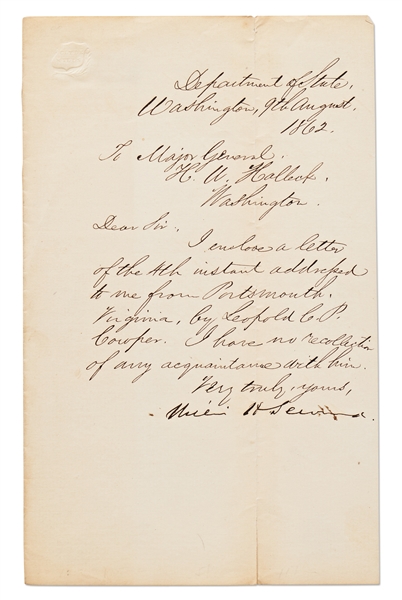 Department of State,
Washington, 9th August.
1862.
To Major General.
H. W. Halleck.
Washington.
Dear Sir.,
I enclose a letter
of the 4th instant addressed
to me from Portsmouth.
Virginia, by Leopold C. P.
Cowper. I have no recollection
of any acquaintance with him.
Very truly yours,
William H Seward.